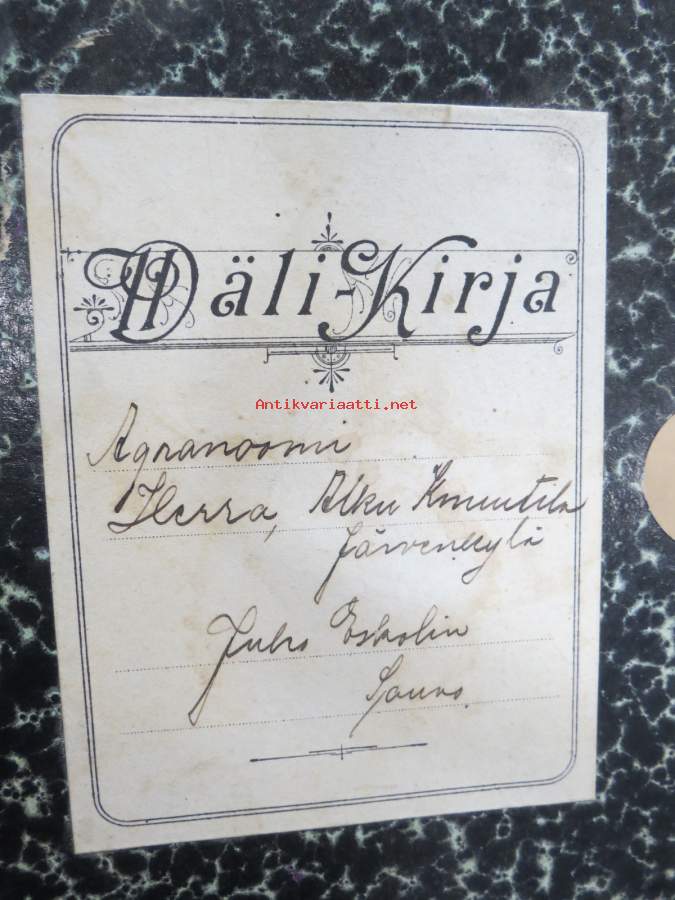 Wäli-Kirja
Antikvariaatti.net
Agranoomi
Herra, Alku
Järvenkylä
Juho Eskolin
Sauvo.